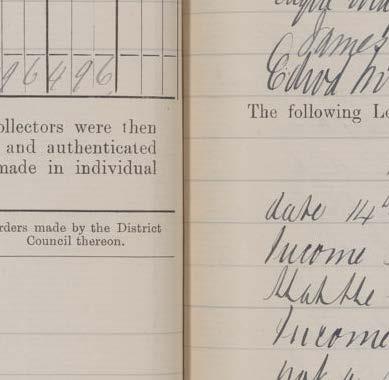 96 4 96
ollectors were then
and authenticated
made in individual
rders made by the District
Council thereon.
James
Edwd
The following Lo
date 14th
Income
that the
Income
not a